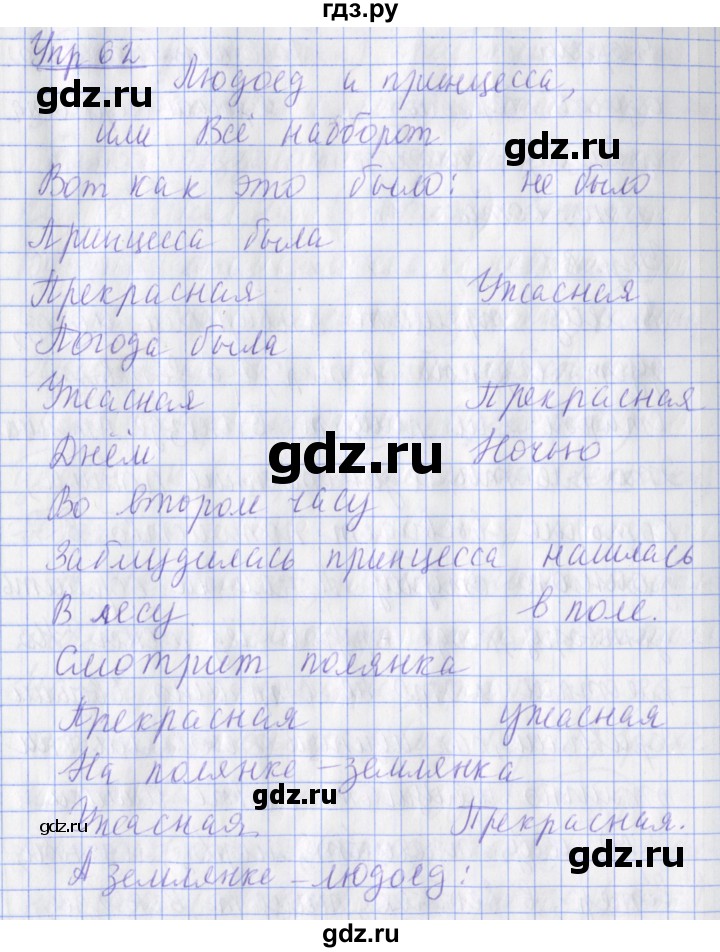 гдз.ру
Упр 62
Людоед и принцесса,
или Всё наоборот
Вот как это было: не было
Принцесса была
Прекрасная Ужасная
Погода была
Ужасная Прекрасная
Днём Ночью
Во втором часу
Заблудилась принцесса нашлась
В лесу. в поле.
Смотрит полянка
Прекрасная ужасная
На полянке - землянка
Ужасная Прекрасная.
А землянке - людоед:
gdz.ru
gdz.ru
gdz.ru
gdz.ru
gdz.ru
gdz.ru
gdz.ru